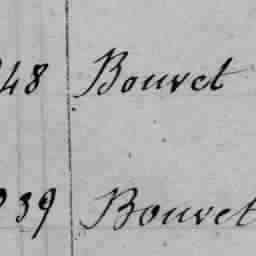 48 Bouvet
39 Bouvet